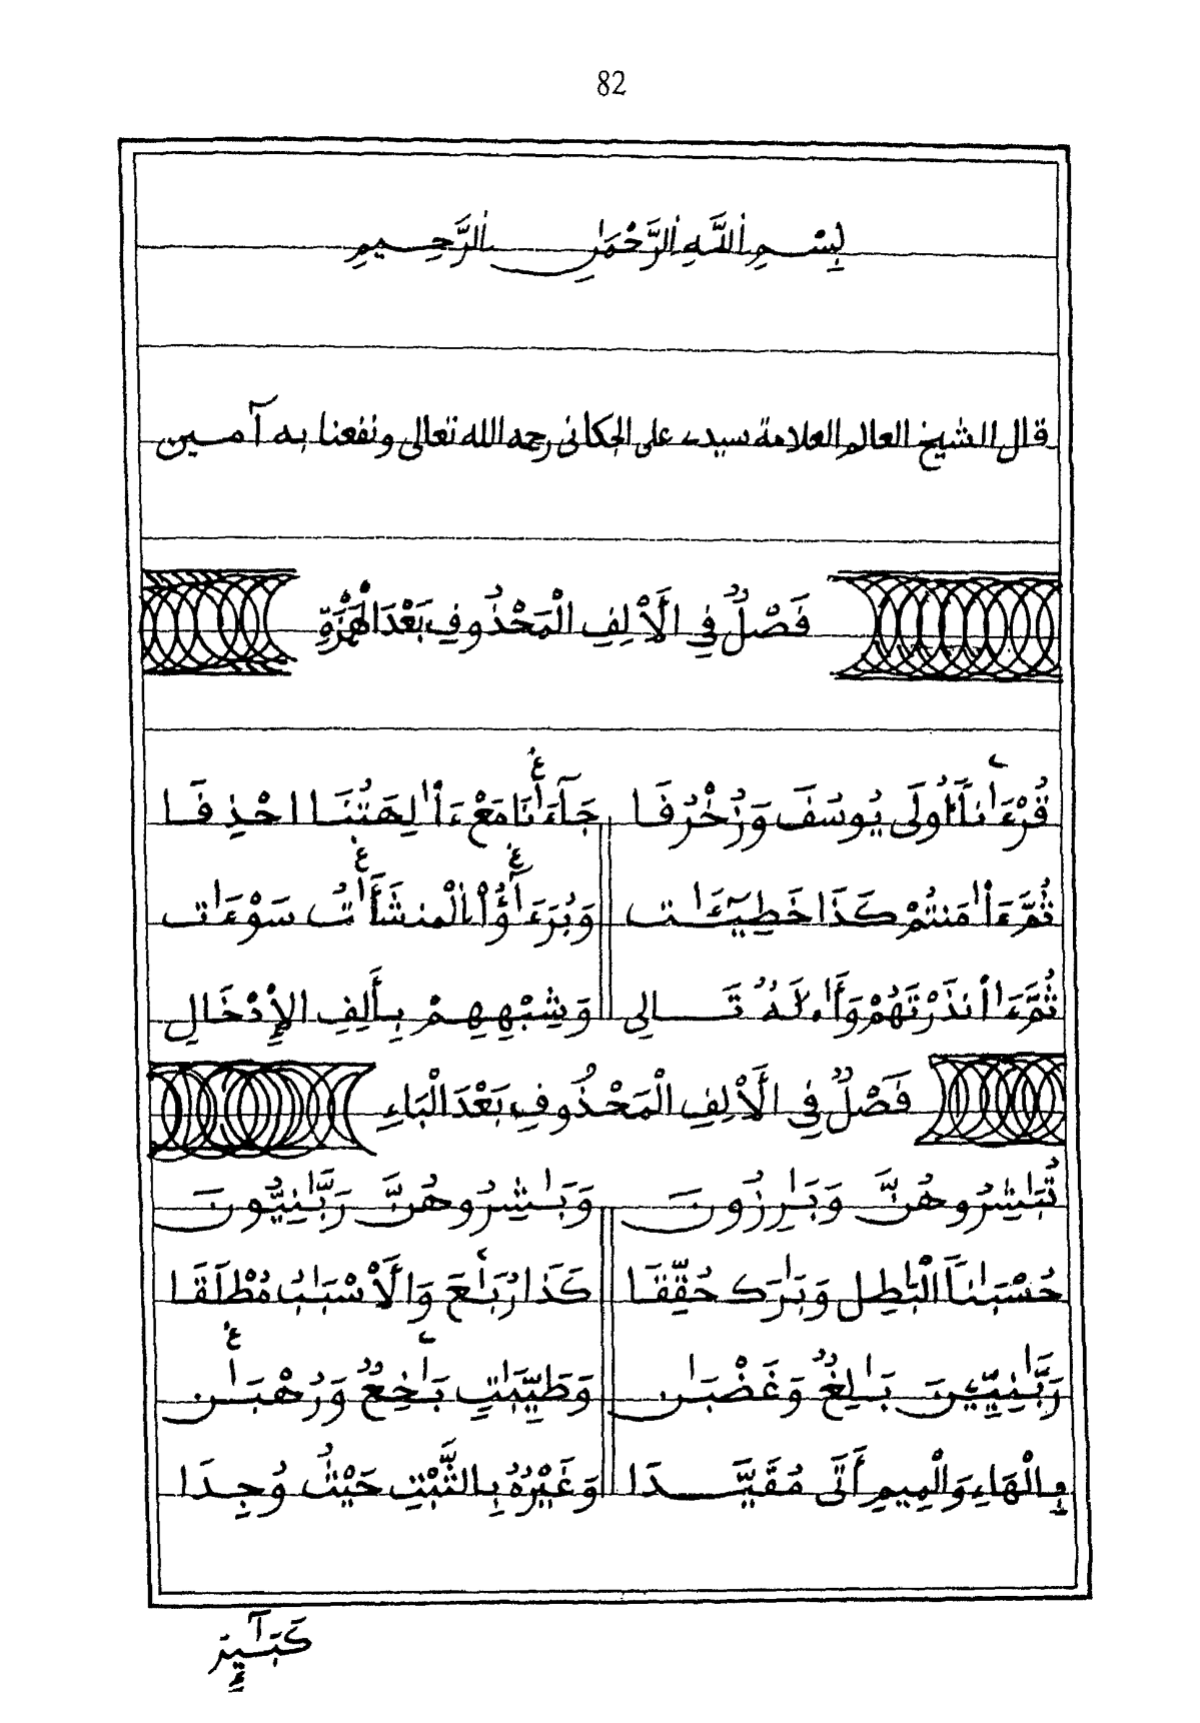 82
بِسْمِ اللَّهِ الرَّحْمَٰنِ الرَّحِيمِ
قال الشيخ العالم العلامة سيدے على الجكانى رحمه الله تعالى ونفعنا به آمين
فَصْلٌ فِي الَالِفِ الْمَحْذُوفِ بَعْدَ الْهَمْزَةِ
قُرْءَٰناً اُولَى يُوسُفَ وَزُخْرُفَا جَآءَٰنَا مَعْ ءَأٰلِهَتُنَا احْذِفَا
ثُمَّ ءَأٰمَنتُمْ كَذَا خَطِيٓـَٔـٰت وَبُرَءَٰٓؤُاْ الْمُنشَـَٔـٰتُ سَوْءَٰت
ثُمَّ ءَأٰنذَرْتَهُمْ وَأَ.لَهٌ تَالِى وَشِبْهِهِمْ بِأَلِفِ الإِدْخَالِ
فَصْلٌ فِي الَالِفِ الْمَحْذُوفِ بَعْدَ الْبَاءِ
تُبَٰشِرُوهُنَّ وَبَٰرِزُونَ وَبَٰشِرُوهُنَّ رَبَّٰنِيُّونَ
حُسْبَٰناً الْبَٰطِل وَبَٰرَك حُقِّقَا كَذَا رُبَٰعَ وَالَاسْبَٰبُ مُطْلَقَا
رَبَّٰنِيِّينَ بَٰلِغٌ وَغَضْبَٰن وَطَيِّبَٰتٍ بَٰخِعٌ وَرُهْبَٰن
بِالْهَاءِ وَالْمِيمِ أَتَى مُقَيَّدَا وَغَيْرُهُ بِالثَّبْتِ حَيْثُ وُجِدَا
كَبَٰٓئِرَ